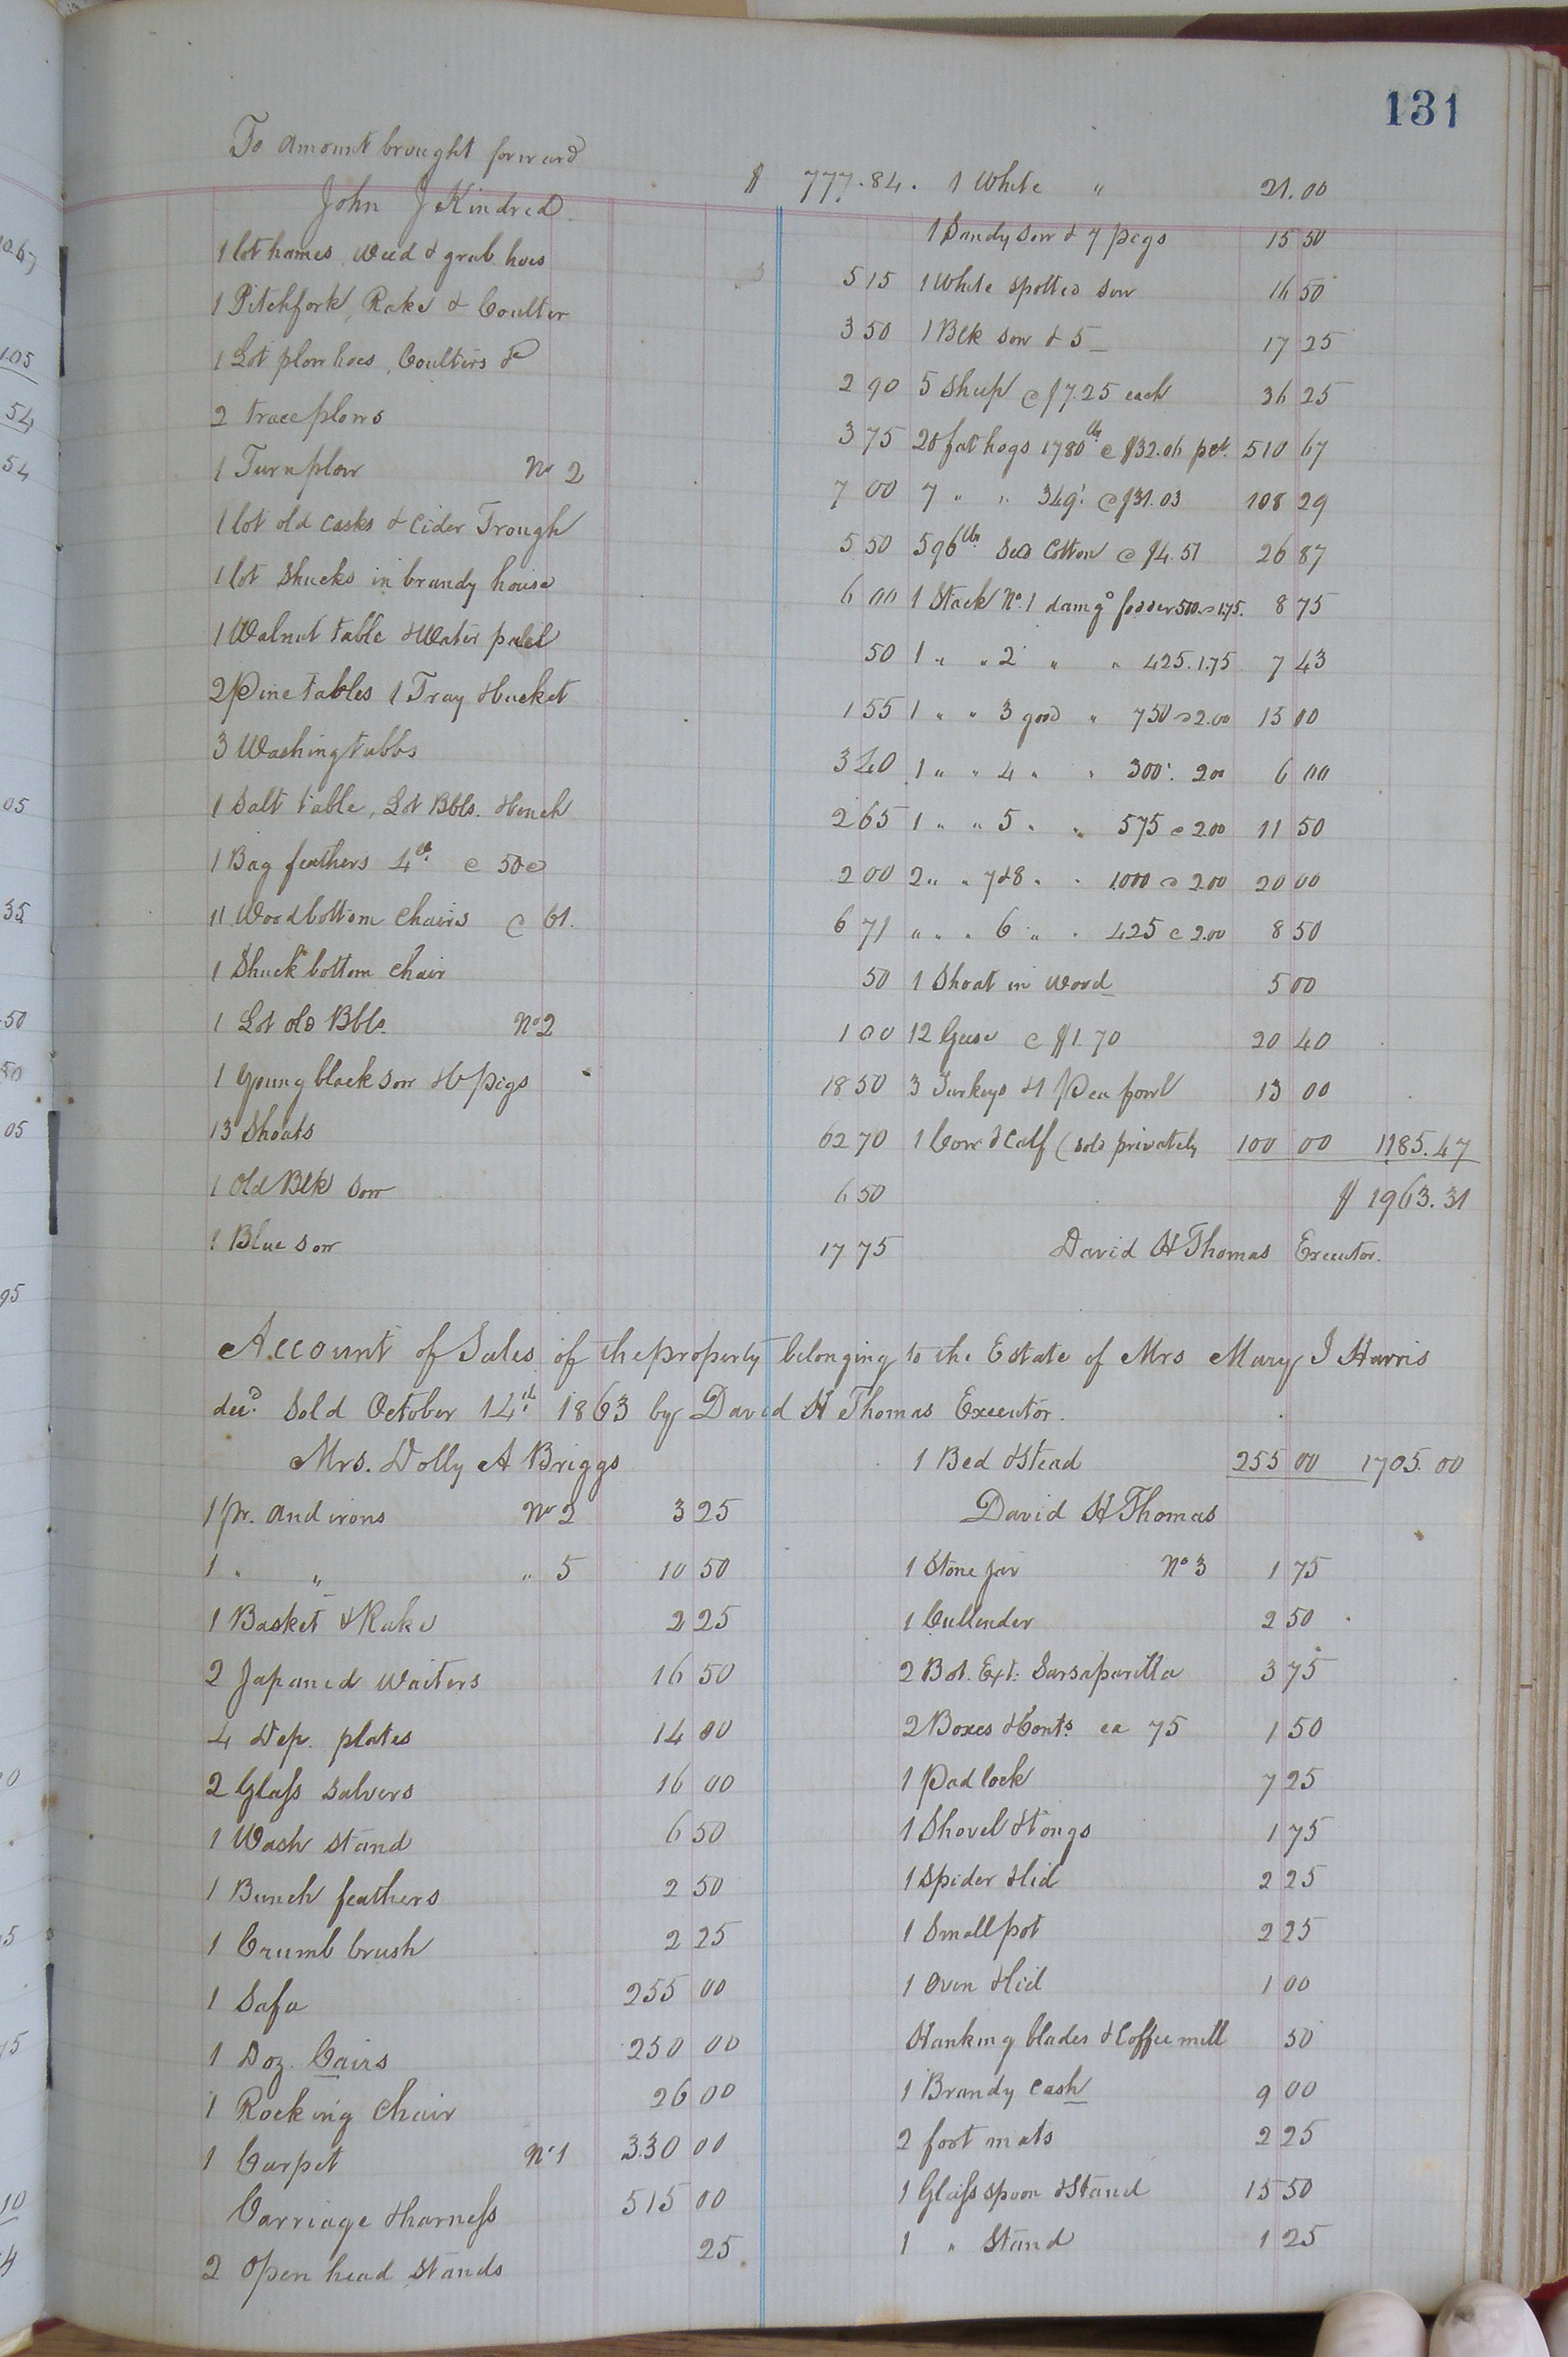 131
To amount brought forward $ 777.84.
John J Kindred
1 lot hames weed & grub hoes 5 15
1 Pitchfork, Rake & Coulter 3 50
1 Lot plow hoes, Coulters &c 2 90
2 trace plows 3 75
1 Turnplow No 2 7 00
1 lot old casks & Cider Trough 5 50
1 lot Shucks in brandy house 6 00
1 Walnut table & Water pail 50
2 Pine tables 1 Tray & bucket 1 55
3 Washing tubbs 3 40
1 Salt table, Lot Bbls. & bench 2 65
1 Bag feathers 4lb @ 50c 2 00
11 Woodbottom chairs @ 61. 6 71
1 Shuck bottom chair 50
1 Lot old Bbls. No 2 1 00
1 Young black sow & 6 pigs 18 50
13 Shoats 62 70
1 Old Blk sow 6 50
1 Blue sow 17 75
1 White " 21.00
1 Sandy sow & 7 pigs 15 50
1 White spotted sow 16 50
1 Blk sow & 5 – 17 25
5 Sheep @ $7.25 each 36 25
20 fat hogs 1780lbs @ $32.06 pr. 510 67
7 " " 349. @ $31.03 108 29
596lbs Seed Cotton @ $4.51 26 87
1 Stack No. 1 damgd fodder 500 @ 1.75. 8 75
1 " " 2 " " 425. 1.75 7 43
1 " " 3 good " 750 @ 2.00 15 00
1 " " 4 " " 300. 200 6 00
1 " " 5 " " 575 @ 200 11 50
2 " " 7 & 8 " " 1000 @ 200 20 00
" " " 6 " " 425 @ 2.00 8 50
1 Shoat in wood 5 00
12 Geese @ $1.70 20 40
3 Turkeys & 1 Pea fowl 13 00
1 Cow & Calf (sold privately 100 00 1185.47
$ 1963.31
David H Thomas Executor.
Account of Sales of the property belonging to the Estate of Mrs Mary J Harris
decd. Sold October 14th 1863 by David H Thomas Executor.
Mrs. Dolly A Briggs
1 pr. And irons No 2 3 25
1 " " " 5 10 50
1 Basket & Rake 2 25
2 Japaned Waiters 16 50
4 Dep. plates 14 00
2 Glass Salvers 16 00
1 Wash stand 6 50
1 Bunch feathers 2 50
1 Crumb brush 2 25
1 Safa 255 00
1 Doz. Cairs 250 00
1 Rocking chair 26 00
1 Carpet No 1 330 00
Carriage & harness 515 00
2 Open head stands 25
1 Bed & Stead 255 00 1705.00
David H Thomas
1 Stone jar No 3 1 75
1 Cullender 2 50
2 Bot. Ext. Sarsaparilla 3 75
2 Boxes & Conts. ea 75 1 50
1 Pad lock 7 25
1 Shovel & tongs 1 75
1 Spider & lid 2 25
1 Small pot 2 25
1 Oven & lid 1 00
Hanking blades & Coffee mill 50
1 Brandy cash 9 00
2 foot mats 2 25
1 Glass spoon & Stand 15 50
1 " Stand 1 25